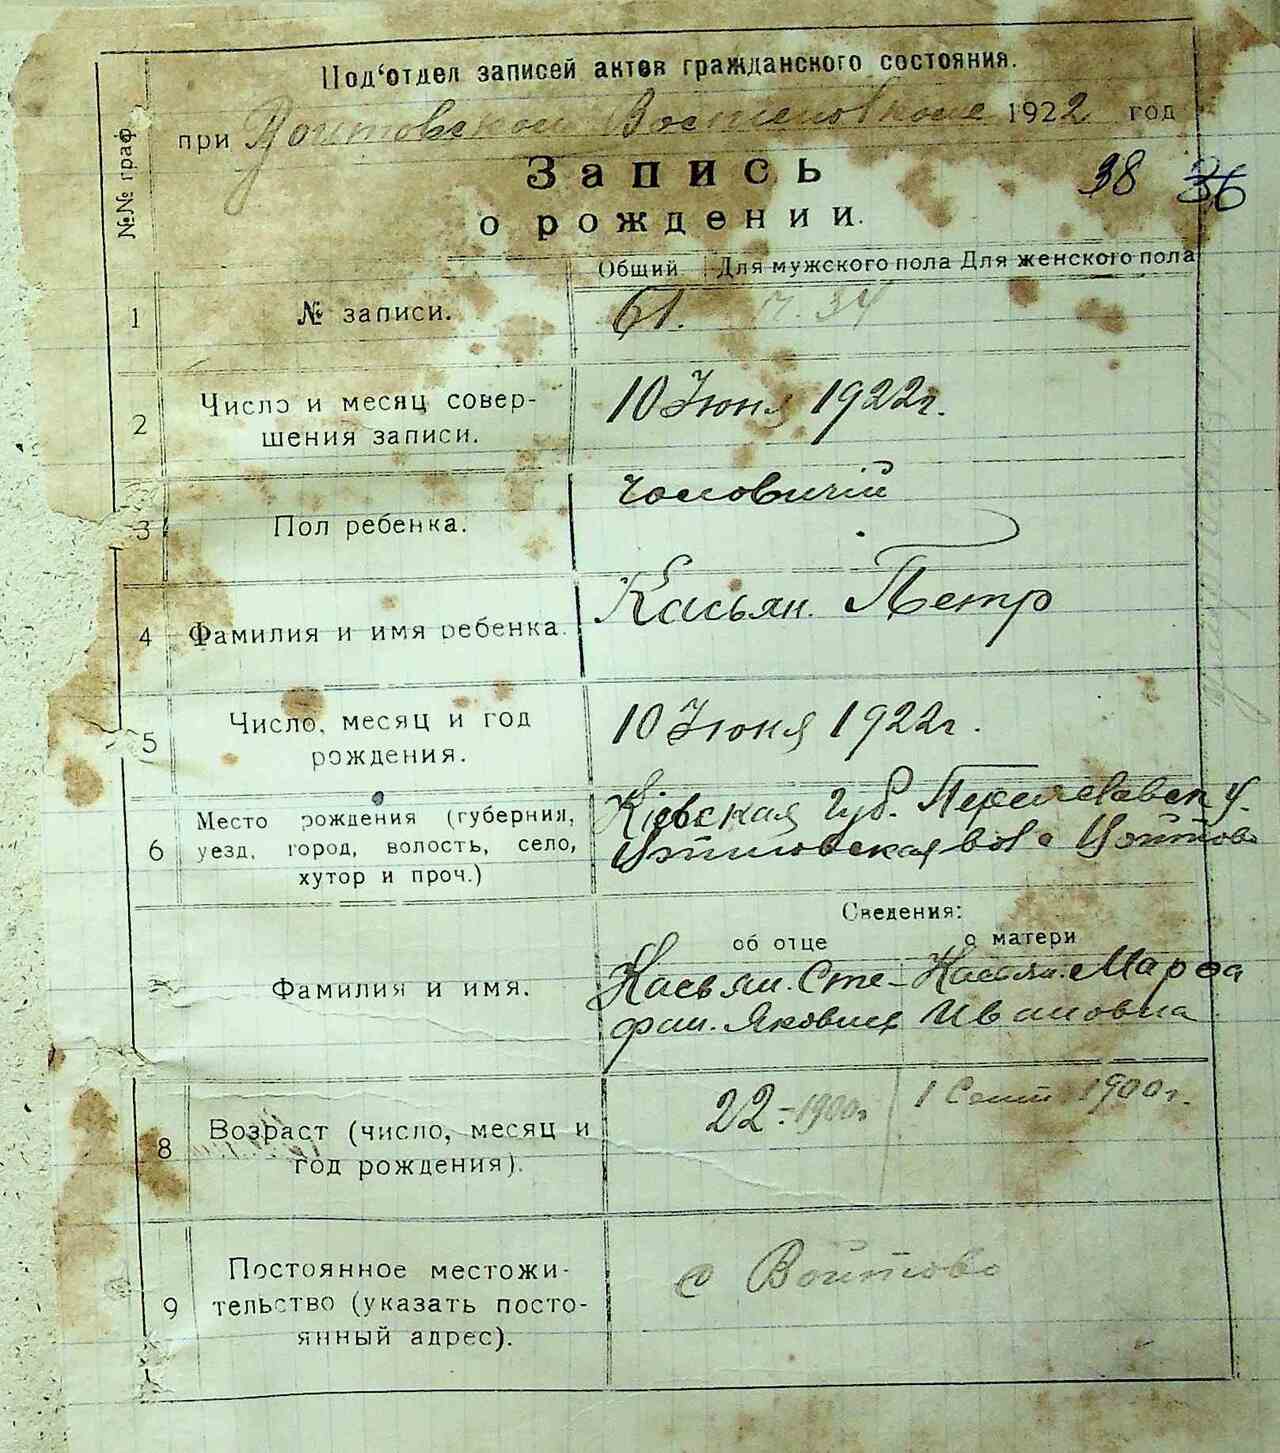 Под'отдел записей актов гражданского состояния.
при Войтовской 1922 год
Запись
38 36
о рождении.
№№ граф
Общий Для мужского пола Для женского пола
1 № записи. 61. 34
2 Число и месяц совер-
шения записи.
10 Июня 1922г.
3 Пол ребенка. чоловичій
4 Фамилия и имя ребенка. Касьян. Петр
5 Число, месяц и год
рождения.
10 Июня 1922г.
6 Место рождения (губерния,
уезд, город, волость, село,
хутор и проч.)
Кіевская губ. Переяславск у.
вол с
Сведения:
об отце о матери
Фамилия и имя.
Касьян. Сте- Касьян. Марфа
фан. Яковлев Ивановна
8 Возраст (число, месяц и
год рождения).
22 - 1900г 1 Сент 1900г.
9 Постоянное местожи-
тельство (указать посто-
янный адрес).
с Войтово